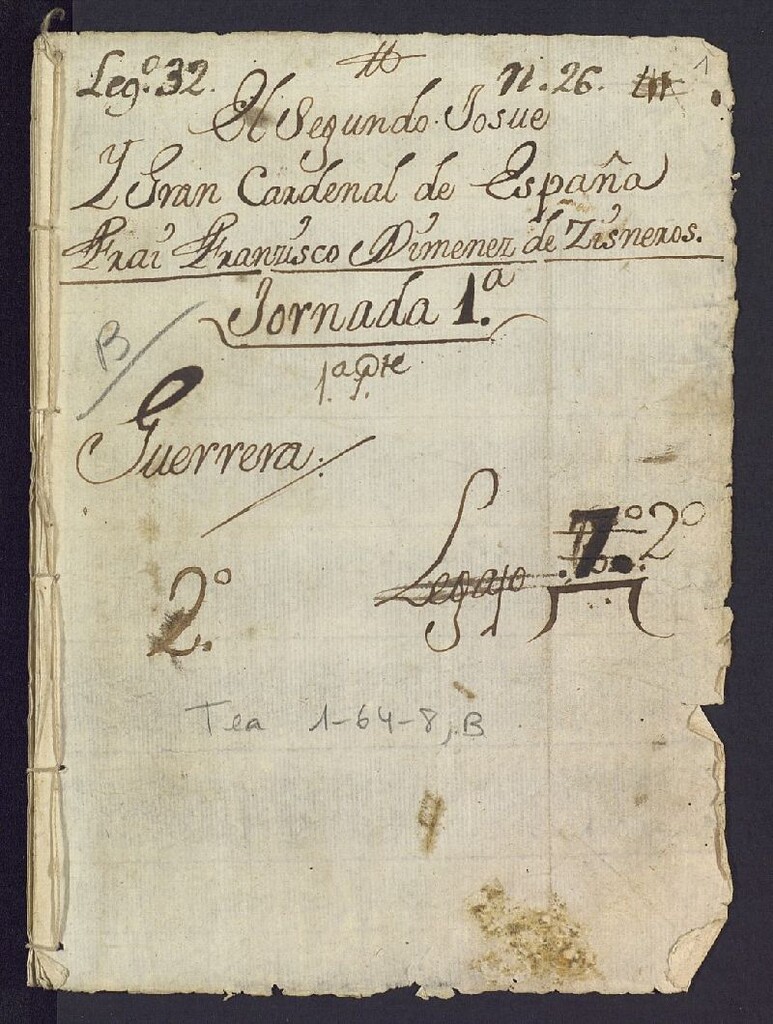 Leg.º 32. n. 26. 1
El Segundo Josue
Y Gran Cardenal de España
Frai Franzisco Ximenez de Zisneros.
Jornada 1.ª
1.ª pte
B
Guerrera.
Legajo 7.º 2º
2.º
Tea 1-64-8, B